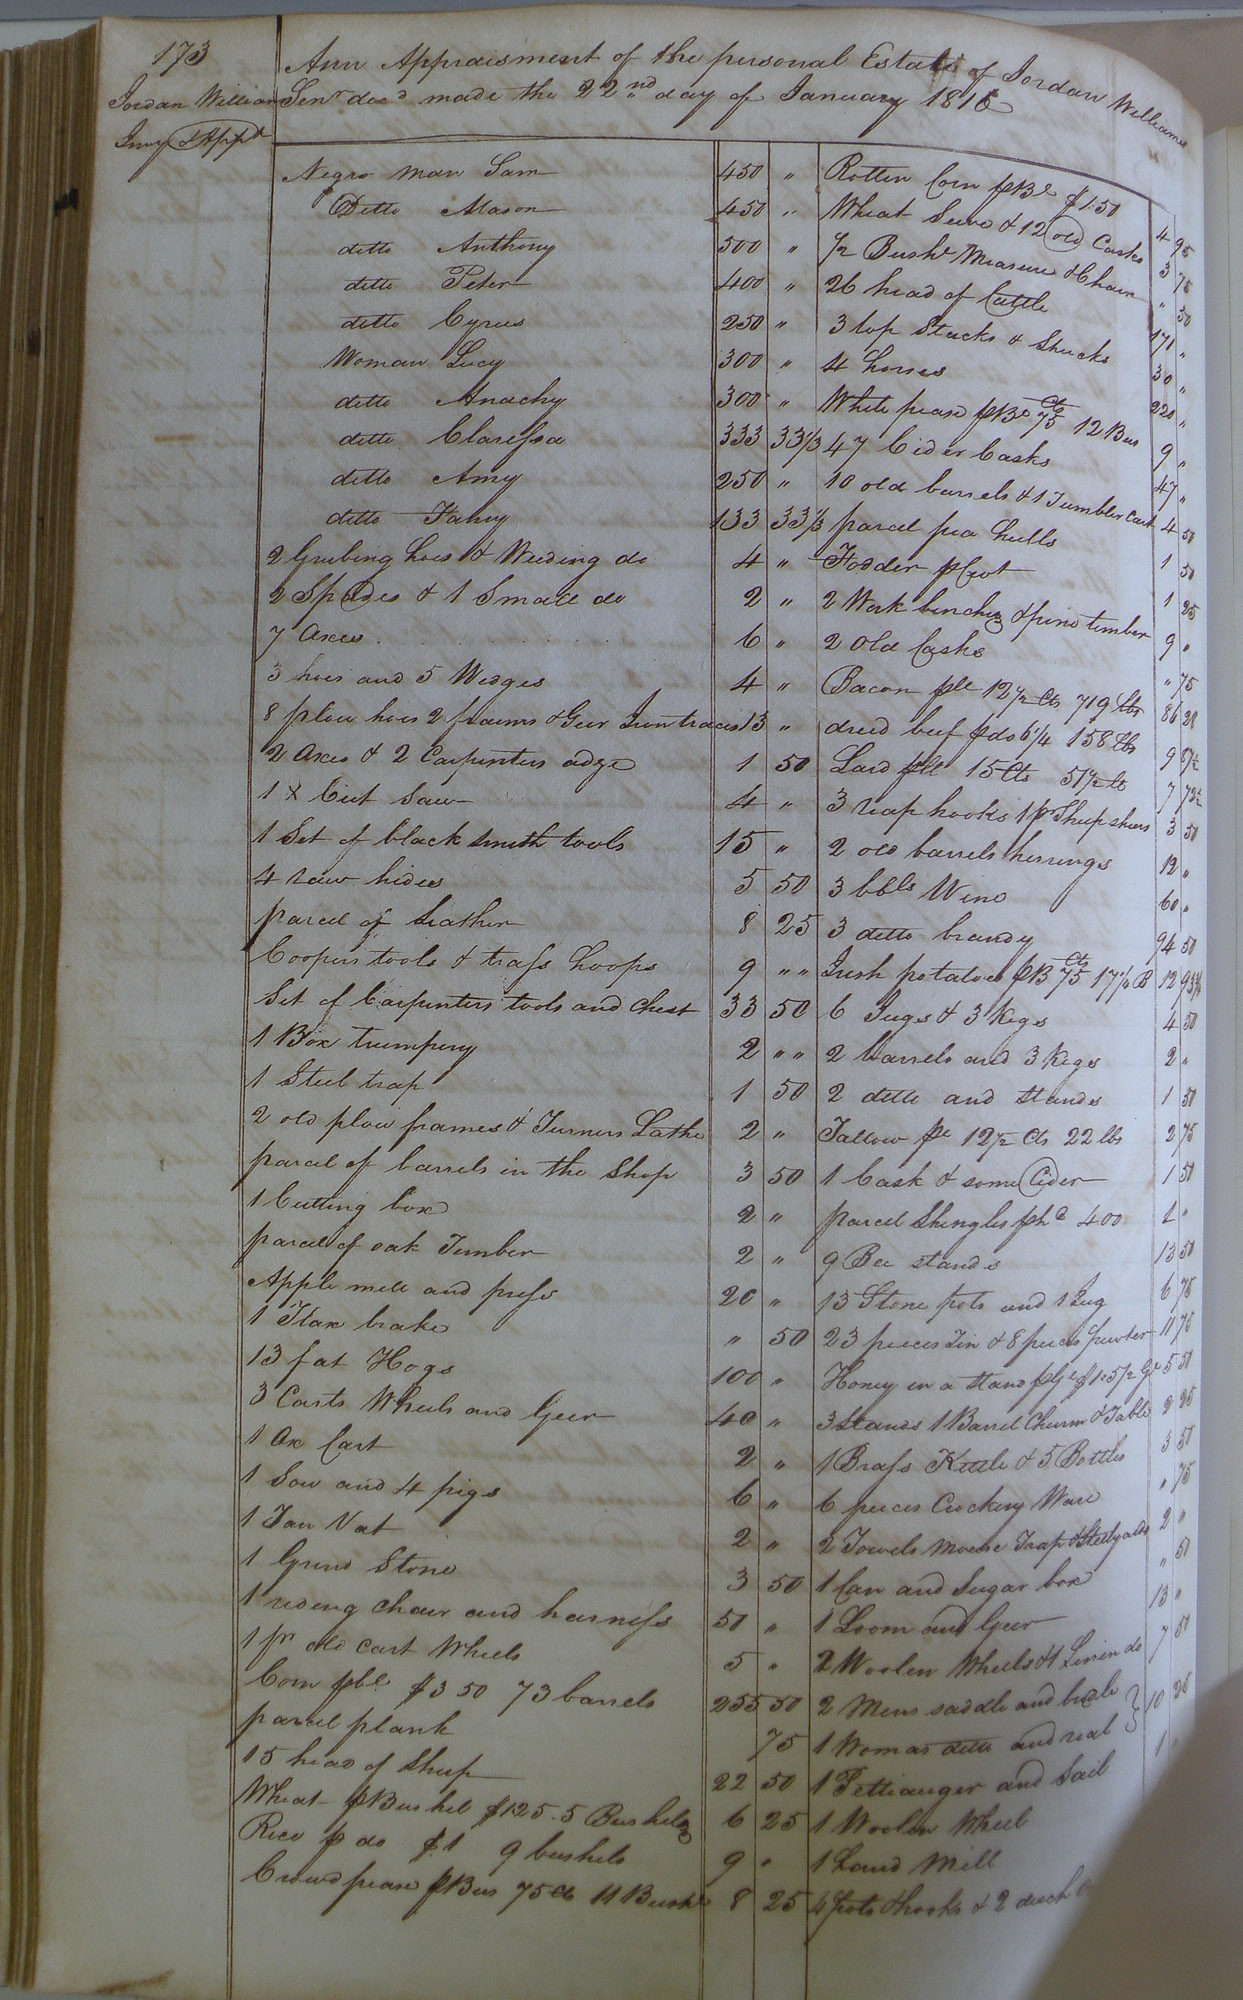 173
Jordan William
Invy & Appt
Ann Appraisment of the personal Estate of Jordan Williams
Senr decd made the 22nd day of January 1816
Negro man Sam 450 "
Ditto Mason 450 "
ditto Anthony 500 "
ditto Peter 400 "
ditto Cyrus 250 "
Woman Lucy 300 "
ditto Anachy 300 "
ditto Clarissa 333 33 1/3
ditto Amy 250 "
ditto Fanny 133 33 1/3
2 Grubing hoes & Weeding do 4 "
2 Spades & 1 Small do 2 "
7 Axes 6 "
3 hoes and 5 Wedges 4 "
8 plow hoes 2 fraims & Geer Iron traces 13 "
2 Axes & 2 Carpenters adge 1 50
1 X Cut Saw 4 "
1 Set of black Smith tools 15 "
4 raw hides 5 50
parcel of Leather 8 25
Coopers tools & trass hoops 9 " "
Set of Carpenters tools and Chest 33 50
1 Box trumpery 2 " "
1 Steel trap 1 50
2 old plow frames & Turners Lathe 2 "
parcel of barrels in the Shop 3 50
1 Cutting box 2 "
parcel of oak Timber 2 "
Apple mill and press 20 "
1 Flax brake " 50
13 fat Hogs 100 "
3 Carts Wheels and Geer 40 "
1 Ox Cart 2 "
1 Sow and 4 pigs 6 "
1 Tan Vat 2 "
1 Grind Stone 3 50
1 rideing chair and harness 50 "
1 pr old cart Wheels 5 "
Corn pbl $3 50 73 barrels 255 50
parcel plank 75
15 head of Sheep 22 50
Wheat pBushel $1 25 . 5 Bushels 6 25
Rice p do $1 9 bushels 9 "
Crowd pease pBus 75 Cts 11 Bushs 8 25
Rotten Corn pBl $1.50 4 95
Wheat Seive & 12 old Casks 3 75
1/2 Bushl Measure & Chain " 50
26 head of Cattle 171 "
3 top Stacks & Shucks 30 "
4 horses 220 "
White pease pBl 75 Cts 12 Bus 9 "
47 Cider Casks 47 "
10 old barrels & 1 Tumbler Cart 4 50
parcel pea hulls 1 50
Fodder pCwt 1 25
2 Work benches & pine timber 9 "
2 Old Casks " 75
Bacon plb 12 1/2 Cts 719 lbs 86 28
dried beef p do 6 1/4 158 lbs 9 87 1/2
Lard plb 15 Cts 51 1/2 lb 7 72 1/2
3 reap hooks 1 pr Sheep shears 3 50
2 old barrels herrings 12 "
3 bbls Wine 60 "
3 ditto brandy 94 50
Irish potatoes pB 75 Cts 17 1/4 B 12 93 3/4
6 Jugs & 3 Kegs 4 50
2 barrels and 3 Kegs 2 "
2 ditto and stands 1 50
Tallow pl 12 1/2 Cts 22 lbs 2 75
1 Cask & some Cider 1 50
parcel Shingles phd 400 1 "
9 Bee stands 13 50
13 Stone pots and 1 Jug 6 75
23 pieces Tin & 8 pieces pewter 11 75
Honey in a stand pGl $1. 5 1/2 Gl 5 50
3 Stands 1 Barrel Churn & Table 2 25
1 Brass Kettle & 5 Bottles 3 50
6 pieces Crockery Ware " 75
2 Towels mouse Trap & Steelyards 2 "
1 Can and Sugar box " 50
1 Loom and Geer 13 "
2 Woolen Wheels & 1 Linnen do 7 50
2 Mens saddle and bridle } 10 25
1 Womas ditto and real 1 "
1 Pettiauger and Sail
1 Woolen Wheel
1 Land Mill
4 pots & hooks & 2 duch